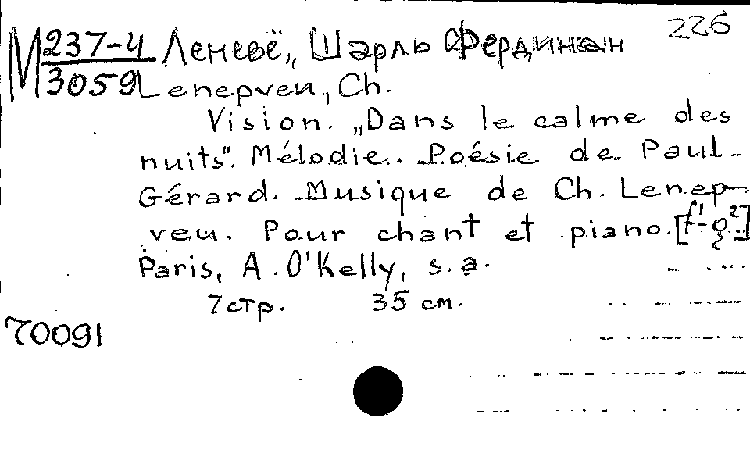 226
M 237-4 Леневё, Шарль Фердинан
3059 Lenepveu, Ch.
Vision. „Dans le calme des
nuits". Mélodie. Poésie de Paul-
Gérard. Musique de Ch. Lenep-
veu. Pour chant et piano. [f¹-g²]
Paris, A. O'Kelly, s.a.
7 стр. 35 см.
70091